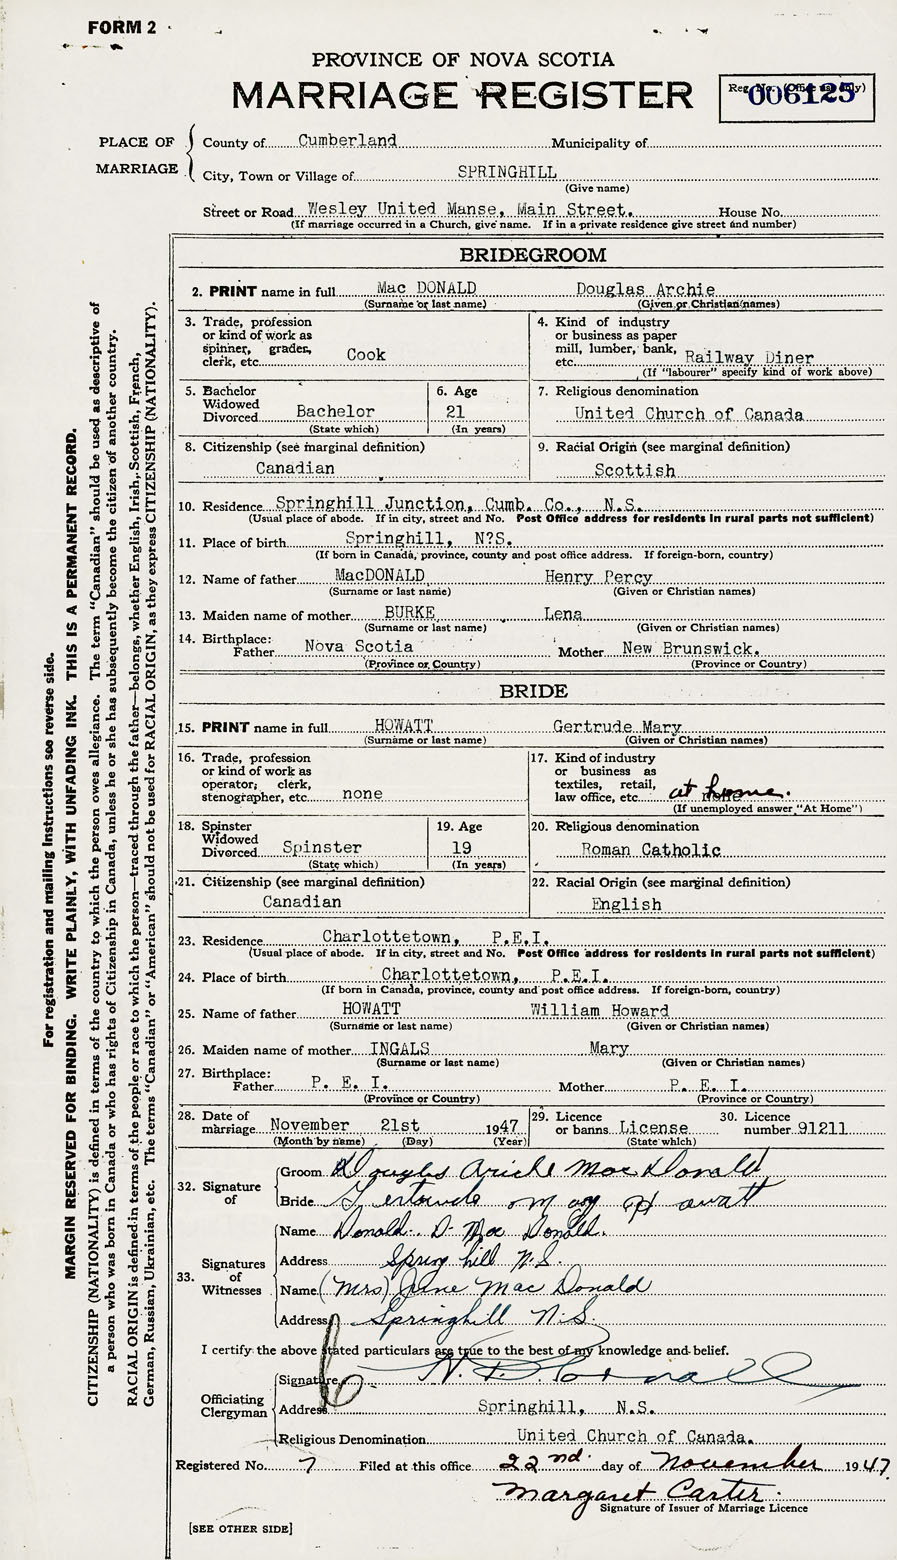 FORM 2
PROVINCE OF NOVA SCOTIA
MARRIAGE REGISTER
Reg. No. (Office use only)
006125
PLACE OF MARRIAGE
County of Cumberland Municipality of
City, Town or Village of SPRINGHILL
(Give name)
Street or Road Wesley United Manse, Main Street. House No.
(If marriage occurred in a Church, give name. If in a private residence give street and number)
BRIDEGROOM
2. PRINT name in full Mac DONALD Douglas Archie
(Surname or last name) (Given or Christian names)
3. Trade, profession or kind of work as spinner, grader, clerk, etc. Cook
4. Kind of industry or business as paper mill, lumber, bank, etc. Railway Diner
(If "labourer" specify kind of work above)
5. Bachelor Widowed Divorced Bachelor
(State which)
6. Age 21
(In years)
7. Religious denomination
United Church of Canada
8. Citizenship (see marginal definition)
Canadian
9. Racial Origin (see marginal definition)
Scottish
10. Residence Springhill Junction, Cumb. Co., N.S.
(Usual place of abode. If in city, street and No. Post Office address for residents in rural parts not sufficient)
11. Place of birth Springhill, N?S.
(If born in Canada, province, county and post office address. If foreign-born, country)
12. Name of father MacDONALD Henry Percy
(Surname or last name) (Given or Christian names)
13. Maiden name of mother BURKE Lena
(Surname or last name) (Given or Christian names)
14. Birthplace: Father Nova Scotia Mother New Brunswick.
(Province or Country) (Province or Country)
BRIDE
15. PRINT name in full HOWATT Gertrude Mary
(Surname or last name) (Given or Christian names)
16. Trade, profession or kind of work as operator, clerk, stenographer, etc. none
17. Kind of industry or business as textiles, retail, law office, etc. at home.
(If unemployed answer "At Home")
18. Spinster Widowed Divorced Spinster
(State which)
19. Age 19
(In years)
20. Religious denomination
Roman Catholic
21. Citizenship (see marginal definition)
Canadian
22. Racial Origin (see marginal definition)
English
23. Residence Charlottetown, P.E.I.
(Usual place of abode. If in city, street and No. Post Office address for residents in rural parts not sufficient)
24. Place of birth Charlottetown, P.E.I.
(If born in Canada, province, county and post office address. If foreign-born, country)
25. Name of father HOWATT William Howard
(Surname or last name) (Given or Christian names)
26. Maiden name of mother INGALS Mary
(Surname or last name) (Given or Christian names)
27. Birthplace: Father P. E. I. Mother P. E. I.
(Province or Country) (Province or Country)
28. Date of marriage November 21st 1947
(Month by name) (Day) (Year)
29. Licence or banns License
(State which)
30. Licence number 91211
32. Signature of
Groom Douglas Archie MacDonald
Bride Gertrude Mary Howatt
33. Signatures of Witnesses
Name Donald D. MacDonald.
Address Springhill N.S.
Name (Mrs) June MacDonald
Address Springhill N.S.
I certify the above stated particulars are true to the best of my knowledge and belief.
Officiating Clergyman
Signature
Address Springhill, N.S.
Religious Denomination United Church of Canada.
Registered No. 7 Filed at this office 22nd. day of November 1947
Margaret Carter.
Signature of Issuer of Marriage Licence
[SEE OTHER SIDE]
For registration and mailing instructions see reverse side.
MARGIN RESERVED FOR BINDING. WRITE PLAINLY, WITH UNFADING INK. THIS IS A PERMANENT RECORD.
CITIZENSHIP (NATIONALITY) is defined in terms of the country to which the person owes allegiance. The term "Canadian" should be used as descriptive of
a person who was born in Canada or who has rights of Citizenship in Canada, unless he or she has subsequently become the citizen of another country.
RACIAL ORIGIN is defined in terms of the people or race to which the person—traced through the father—belongs, whether English, Irish, Scottish, French,
German, Russian, Ukrainian, etc. The terms "Canadian" or "American" should not be used for RACIAL ORIGIN, as they express CITIZENSHIP (NATIONALITY).